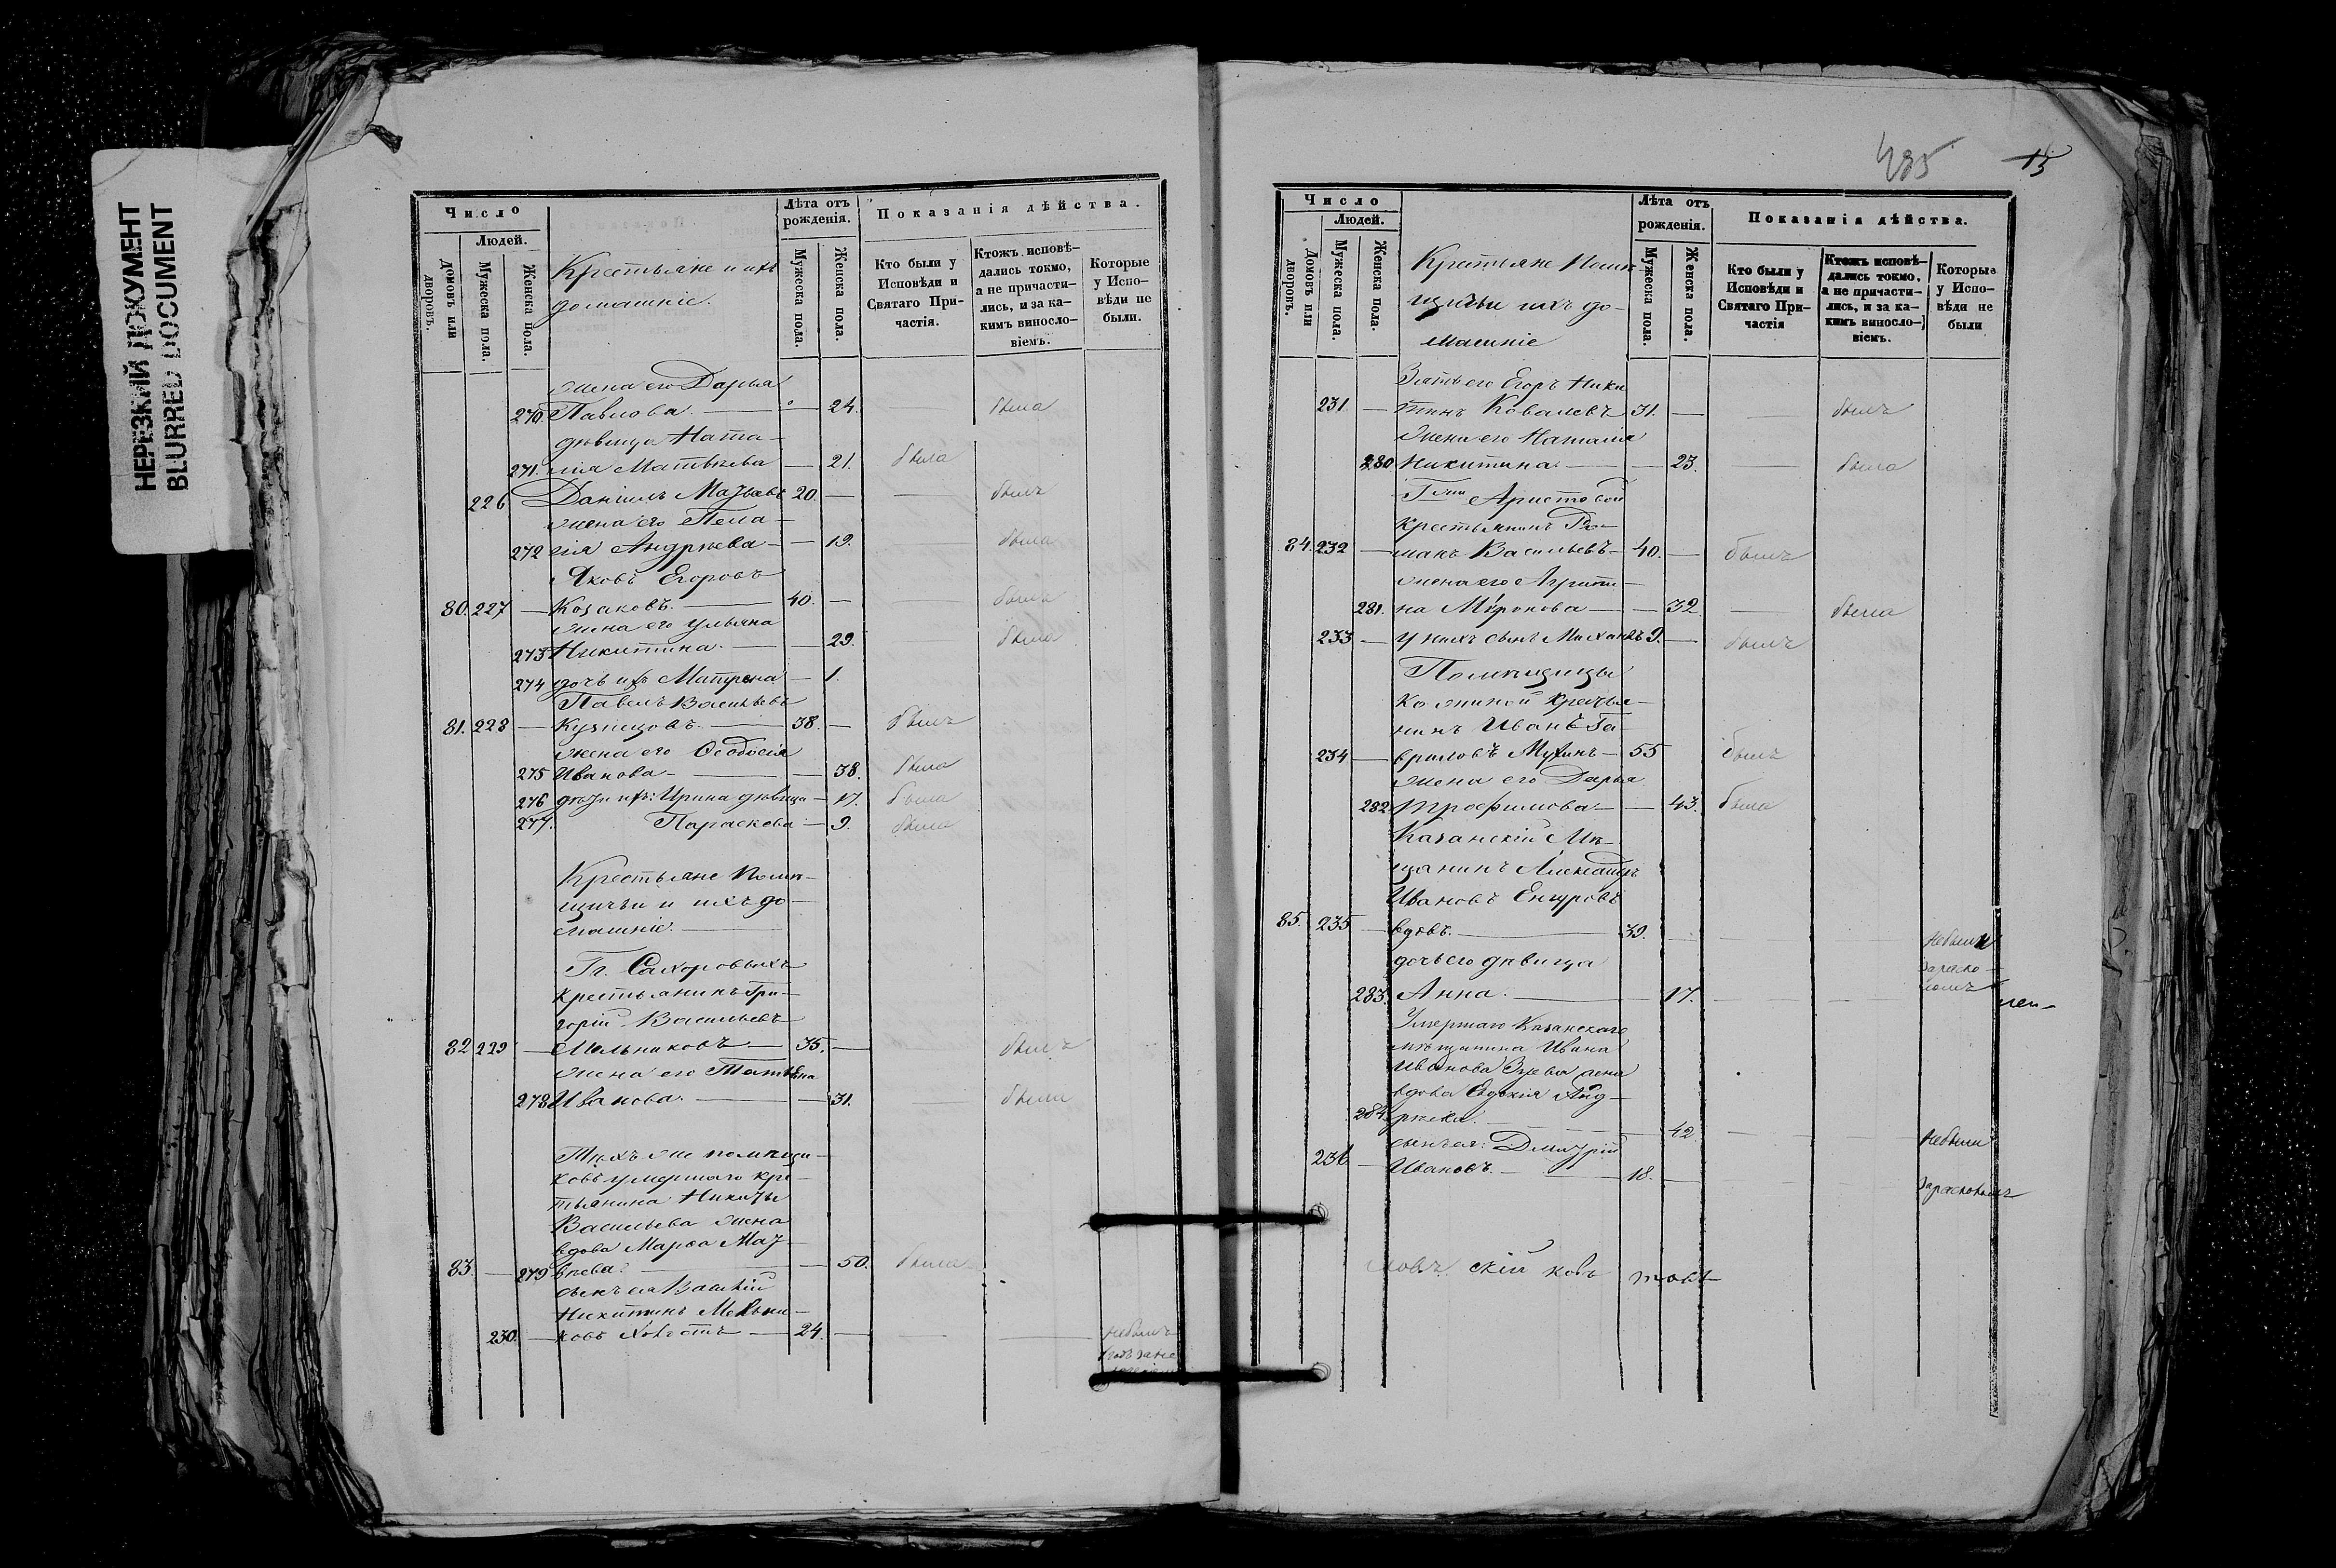 НЕРЕЗКИЙ ДОКУМЕНТ
BLURRED DOCUMENT
Число
Людей.
Домовъ или дворовъ.
Мужеска пола.
Женска пола.
Крестьяне и ихъ
домашніе.
Лѣта отъ рожденія.
Мужеска пола.
Женска пола.
Показанія дѣйства.
Кто были у Исповѣди и Святаго Причастія.
Ктожъ исповѣдались токмо, а не причастились, и за какимъ винословіемъ.
Которые у Исповѣди не были.
жена его Дарья
270 Павлова. — 24. — была
дѣвица Ната-
271. лія Матвѣева — 21. была
226 Даніилъ Матвѣевъ 20. — — былъ
жена его Пела-
272 гія Андрѣева — 19. — была
Яковъ Егоровъ
80. 227 — Козаковъ. — 40. — — былъ
жена его Ульяна
273 Никитина. — 29. была
274 дочь ихъ Матрена — 1.
Павелъ Васильевъ
81. 228 — Кузнецовъ. — 38. — былъ
жена его Ѳеодосія
275 Иванова — 38. была
276 дѣти ихъ: Ирина дѣвица — 17. была
277. Параскева — 9. была
Крестьяне помѣ-
щичьи и ихъ до-
машніе.
Гг. Сахоровыхъ
крестьянинъ Гри-
горій Васильевъ
82 229 — Мельниковъ — 35. — былъ
жена его Татьяна
278 Иванова. — 31. — была
Тѣхъ же помѣщи-
ковъ умершаго кре-
тьянина Никиты
Васильева жена
вдова Марѳа Мат-
83. — 279 вѣева. — 50. была
сынъ ея Василій
Никитинъ Мельни-
230. — ковъ холостъ — 24. — — — небылъ
485
15
Число
Людей.
Домовъ или дворовъ.
Мужеска пола.
Женска пола.
Крестьяне помѣ-
щичьи ихъ до-
машніе
Лѣта отъ рожденія.
Мужеска пола.
Женска пола.
Показанія дѣйства.
Кто были у Исповѣди и Святаго Причастія
Ктожъ исповѣдались токмо, а не причастились, и за какимъ винословіемъ.
Которые у Исповѣди не были
Зять его Егоръ Ники
231. — тинъ Ковалевъ 31. — — былъ
Жена его Наталія
280 Никитина. — 23. — была
Аристовой
крестьянинъ Ро-
84. 232 — манъ Васильевъ — 40. — былъ
жена его Агрипи-
281. на Миронова — 32 — была
233 — у нихъ сынъ Михаилъ 9. — былъ
Помѣщицы
крестья-
нинъ Иванъ Га-
234 — вриловъ Мухинъ — 55 былъ
жена его Дарья
282 Трофимова. — 43. была
Казанскій Мѣ-
щанинъ Александръ
Ивановъ
85. 235 — вдовъ. — 39. небыли
дочь его дѣвица
283. Анна. — 17.
Умершаго Казанскаго
мѣщанина Ивана
Иванова жена
вдова Евдокія Анд-
284. рѣева. — 42. небыли
сынъ ея: Дмитрій
236 — Ивановъ. — 18. —
ковъ